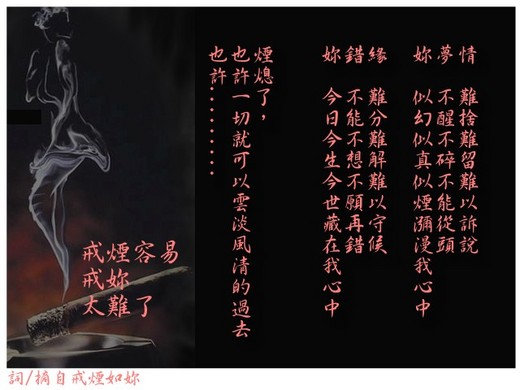 情　難捨難留難以訴說
夢　不醒不碎不能從頭
妳　似幻似真似煙瀰漫我心中
緣　難分難解難以守候
錯　不能不想不願再錯
妳　今日今生今世藏在我心中
煙熄了，
也許一切就可以雲淡風清的過去
也許‥‥‥‥‥
戒煙容易
戒妳
太難了
詞/摘自戒煙如妳